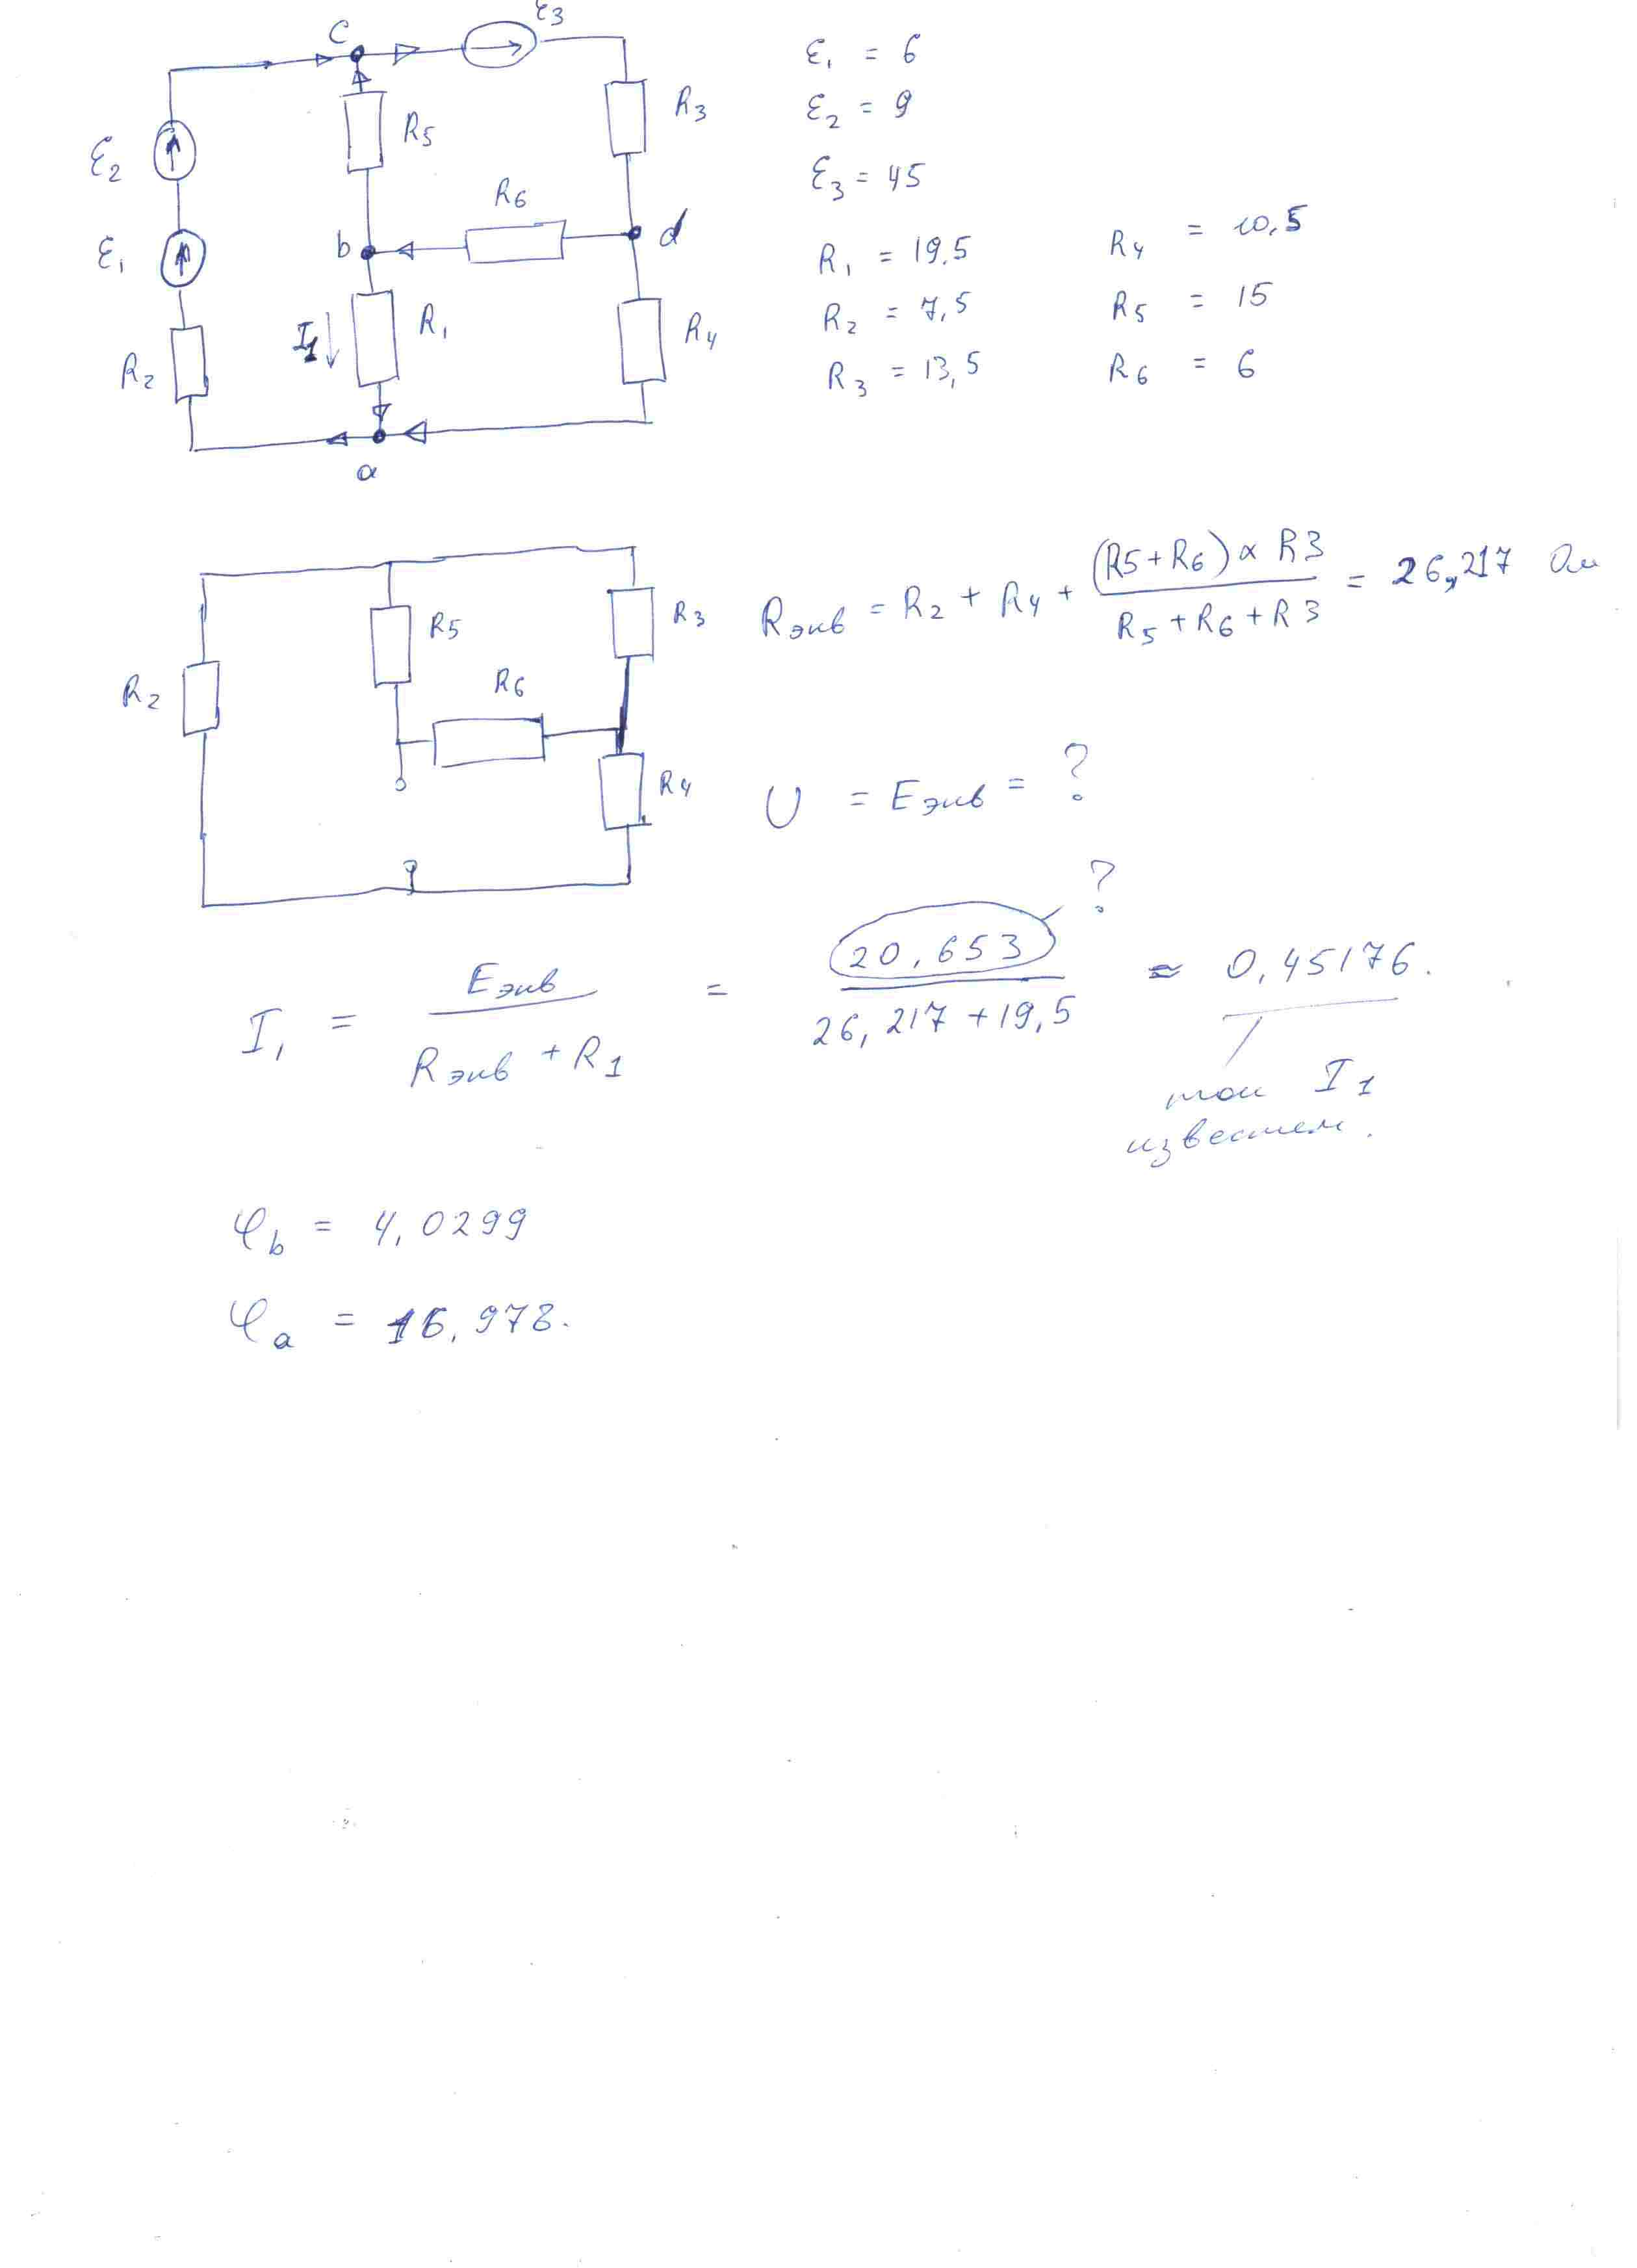 C
ε3
R3
R5
ε2
R6
b
d
ε1
I1
R1
R4
R2
a
ε1 = 6
ε2 = 9
ε3 = 45
R1 = 19,5
R4 = 10,5
R2 = 7,5
R5 = 15
R3 = 13,5
R6 = 6
R5
R3
R6
R2
R4
Rэкв = R2 + R4 + (R5+R6) × R3 / R5+R6+R3 = 26,217 Ом
U = Eэкв = ?
?
I1 = Eэкв / Rэкв + R1 = 20,653 / 26,217 + 19,5 ≈ 0,45176.
ток I1
известен.
φb = 4,0299
φa = 16,978.